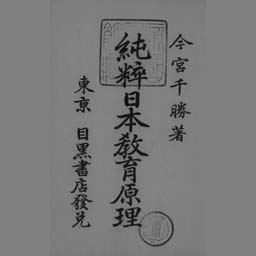 今宮千勝著
純粹日本教育原理
東京 目黒書店發兌